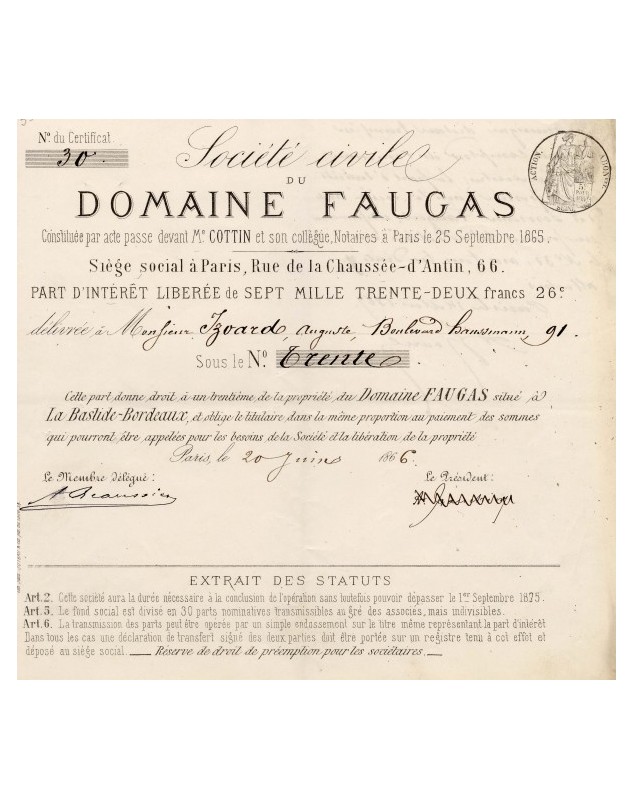 No. du Certificat
30.
Société civile
DU
DOMAINE FAUGAS
Constituée par acte passe devant Me. COTTIN et son collègue, Notaires à Paris le 25 Septembre 1865.
Siège social à Paris, Rue de la Chaussée-d'Antin, 66.
PART D'INTÉRÊT LIBERÉE de SEPT MILLE TRENTE-DEUX francs 26c
délivrée à Monsieur Izoard, Auguste, Boulevard haussmann, 91.
Sous le No. Trente
Cette part donne droit à un trentième de la propriété du Domaine FAUGAS situé à
La Bastide-Bordeaux, et oblige le titulaire dans la même proportion au paiement des sommes
qui pourront être appelées pour les besoins de la Société et la libération de la propriété
Paris, le 20 Juins 1866.
Le Membre délégué:
Le Président:
ACTION.
5
EXTRAIT DES STATUTS
Art.2. Cette société aura la durée nécessaire à la conclusion de l'opération sans toutefois pouvoir dépasser le 1er Septembre 1875.
Art.3. Le fond social est divisé en 30 parts nominatives transmissibles au gré des associés, mais indivisibles.
Art.6. La transmission des parts peut être opérée par un simple endossement sur le titre même représentant la part d'intérêt
Dans tous les cas une déclaration de transfert signé des deux parties doit être portée sur un registre tenu à cet effet et
déposé au siège social. — Réserve de droit de préemption pour les sociétaires. —